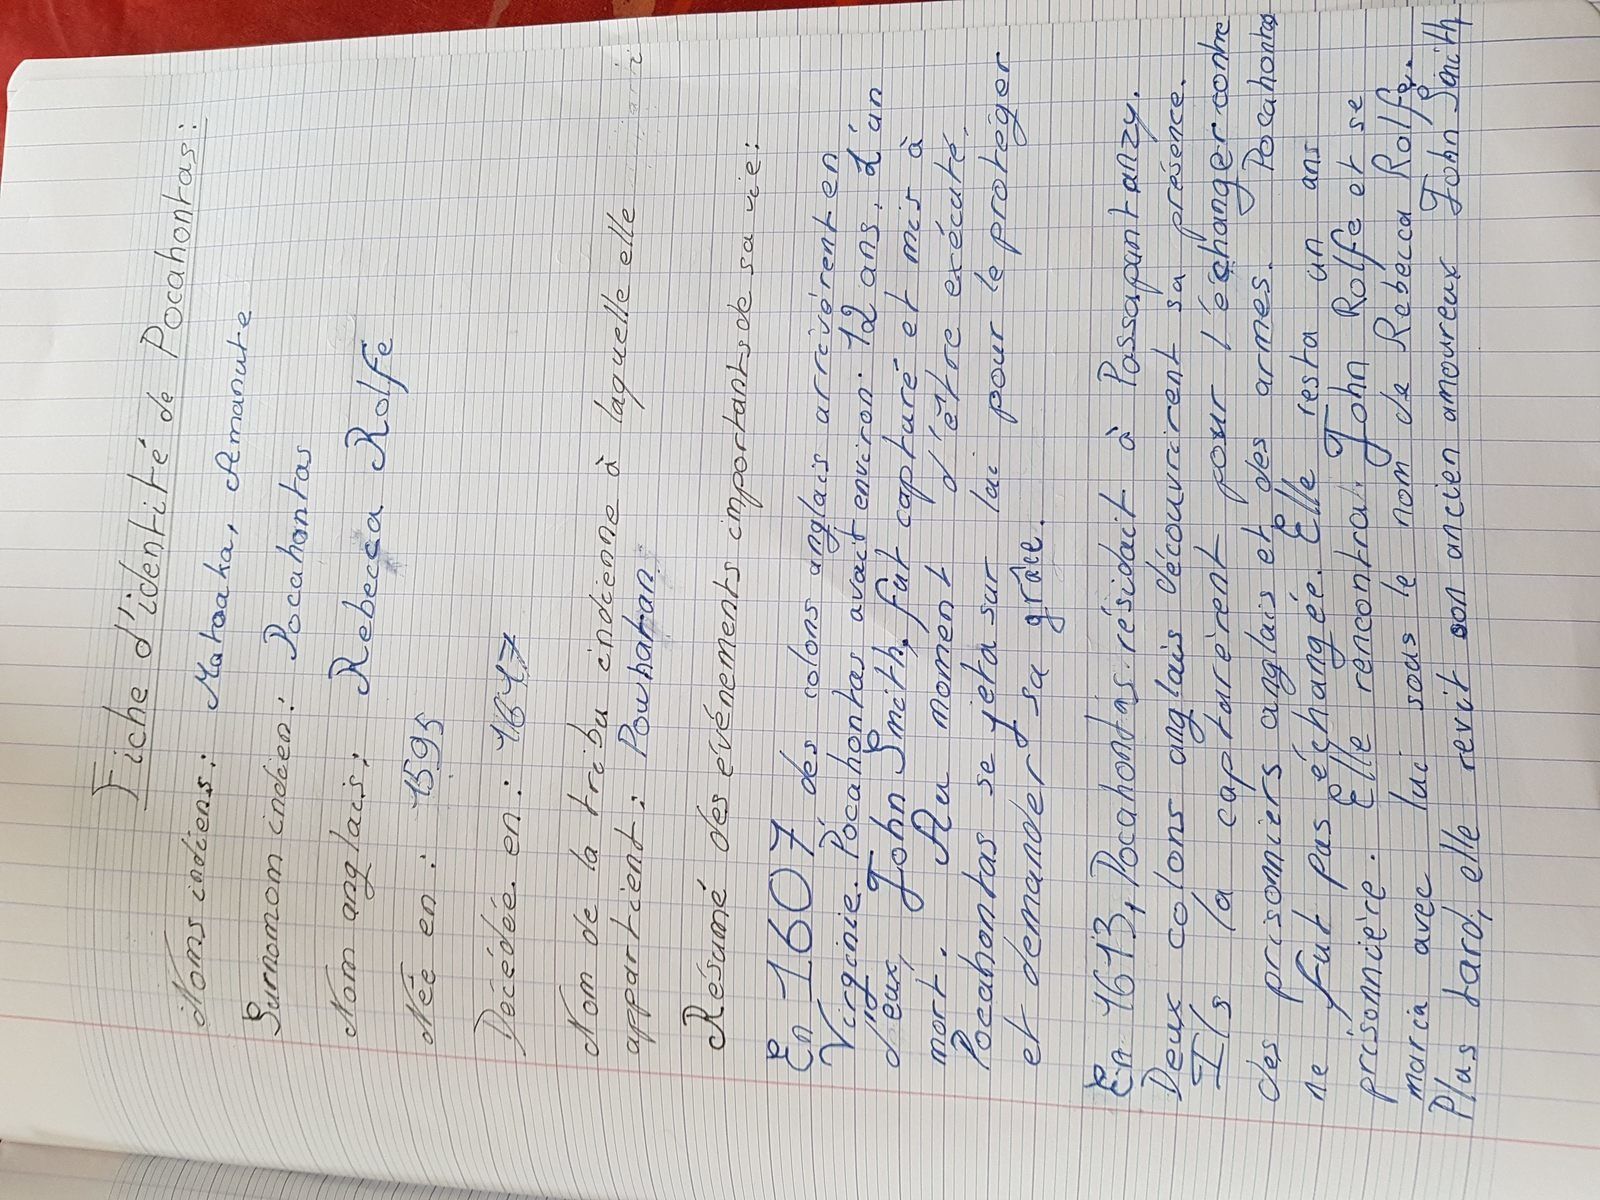 Fiche d'identité de Pocahontas:
Noms indiens: Matoaka, Amanute
Surnomom indien: Pocahontas
Nom anglais: Rebecca Rolfe
Née en: 1595
Décédée en: 1617
Nom de la tribu indienne à laquelle elle
appartient: Powhatan
Résumé des événements importants de sa vie:
En 1607 des colons anglais arrivérent en
Virginie. Pocahontas avait environ 12 ans. L'un
d'eux, John Smith, fut capturé et mis à
mort. Au moment d'être exécuté,
Pocahontas se jeta sur lui pour le protéger
et demander sa grâce.
En 1613, Pocahontas résidait à Passapantanzy.
Deux colons anglais découvrirent sa présence.
Ils la capturèrent pour l'échanger contre
des prisonniers anglais et des armes. Pocahontas
ne fut pas échangée. Elle resta un ans
prisonnière. Elle rencontra John Rolfe et se
maria avec lui sous le nom de Rebécca Rolfe.
Plus tard, elle revit son ancien amoureux John Smith